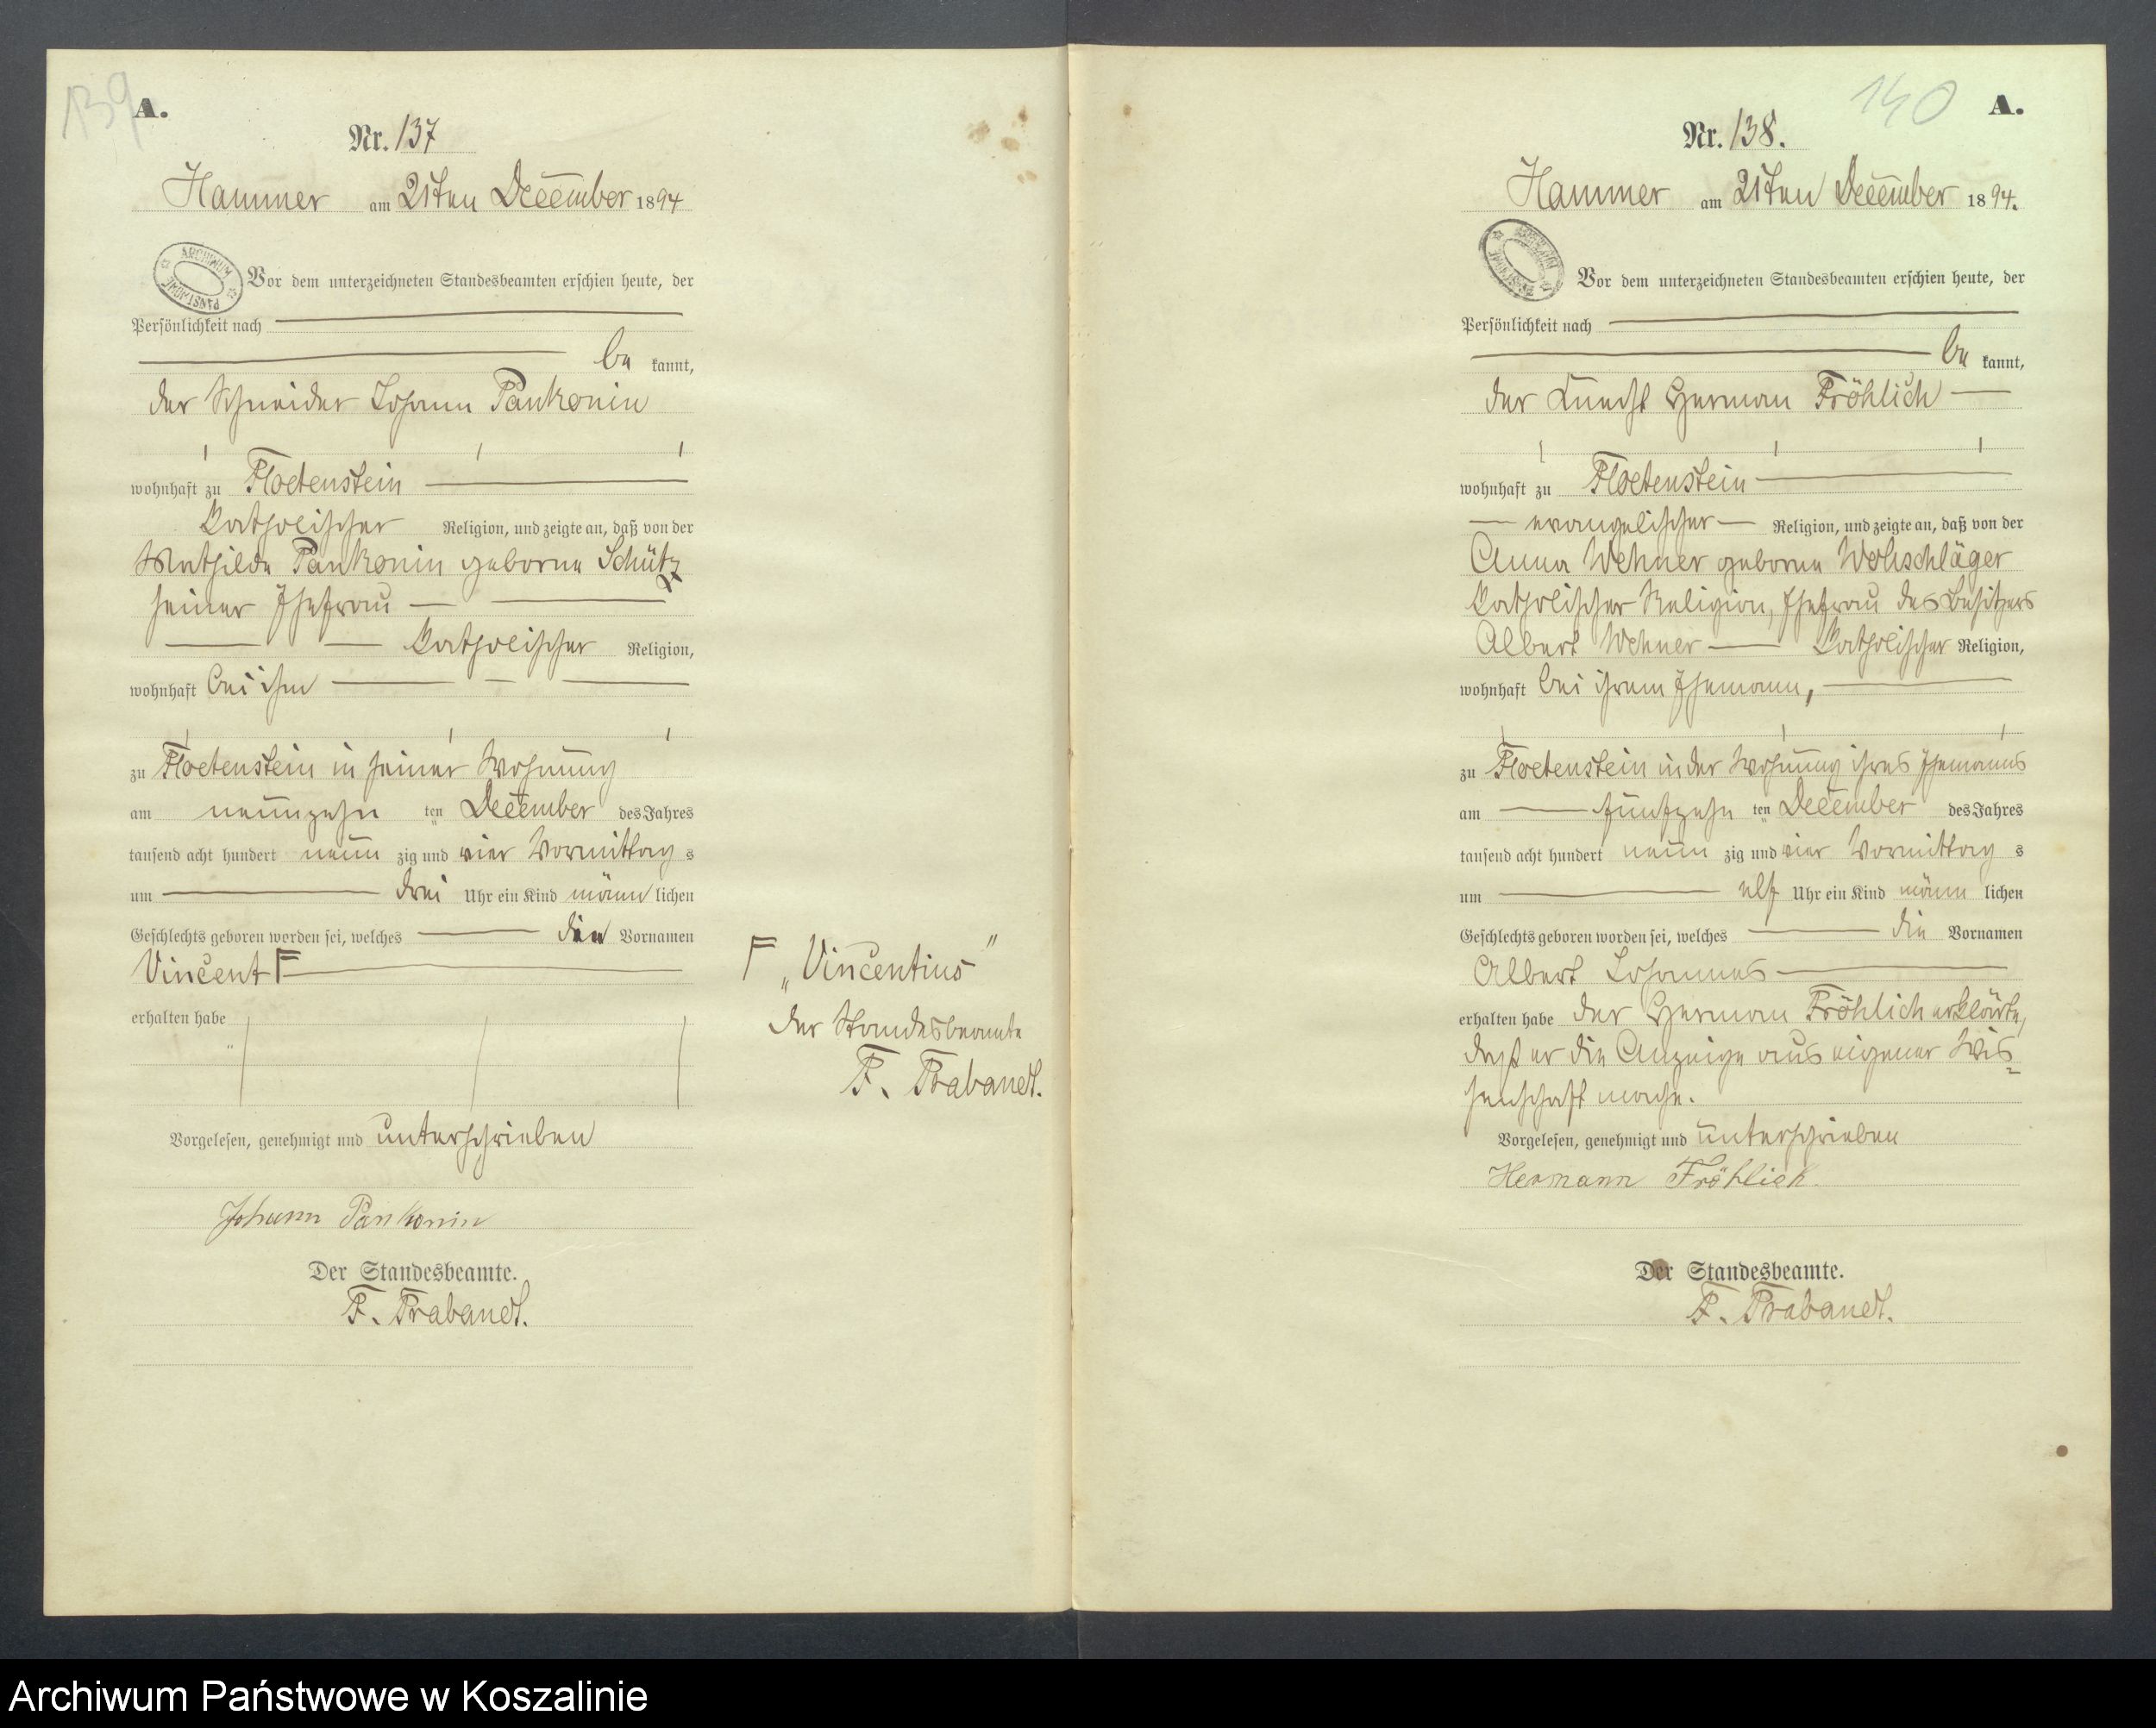 139
A.
Nr. 137
Hammer am 21ten December 1894
ARCHIWUM PAŃSTWOWE
Vor dem unterzeichneten Standesbeamten erschien heute, der
Persönlichkeit nach
be kannt,
der Schneider Johann Pankonin
wohnhaft zu Floetenstein
katholischer Religion, und zeigte an, daß von der
Mathilde Pankonin geborne Schütz
seiner Ehefrau
katholischer Religion,
wohnhaft bei ihm
zu Floetenstein in seiner Wohnung
am neunzehn ten December des Jahres
tausend acht hundert neun zig und vier Vormittag s
um drei Uhr ein Kind männ lichen
Geschlechts geboren worden sei, welches den Vornamen
Vincent F
erhalten habe
Vorgelesen, genehmigt und unterschrieben
Johann Pankonin
Der Standesbeamte.
F. Prabandt.
F „Vincentius"
der Standesbeamte
F. Prabandt.
140
A.
Nr. 138.
Hammer am 21ten December 1894.
Vor dem unterzeichneten Standesbeamten erschien heute, der
Persönlichkeit nach
be kannt,
der Knecht Herman Fröhlich
wohnhaft zu Floetenstein
evangelischer Religion, und zeigte an, daß von der
Anna Wehner geborne Wollschläger
katholischer Religion, Ehefrau des Besitzers
Albert Wehner katholischer Religion,
wohnhaft bei ihrem Ehemann,
zu Floetenstein in der Wohnung ihres Ehemanns
am fünfzehn ten December des Jahres
tausend acht hundert neun zig und vier Vormittag s
um elf Uhr ein Kind männ lichen
Geschlechts geboren worden sei, welches die Vornamen
Albert Johannes
erhalten habe der Herman Fröhlich erklärte,
daß er die Anzeige aus eigener Wis=
senschaft mache.
Vorgelesen, genehmigt und unterschrieben
Hermann Fröhlich.
Der Standesbeamte.
F. Prabandt.
Archiwum Państwowe w Koszalinie